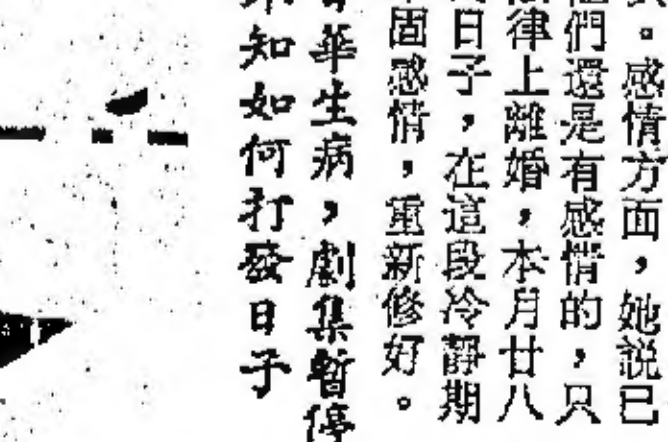 。感情方面，她説已
們還是有感情的，只
律上離婚，本月廿八
日子，在這段冷靜期
固感情，重新修好。
華生病，劇集暫停
知如何打發日子